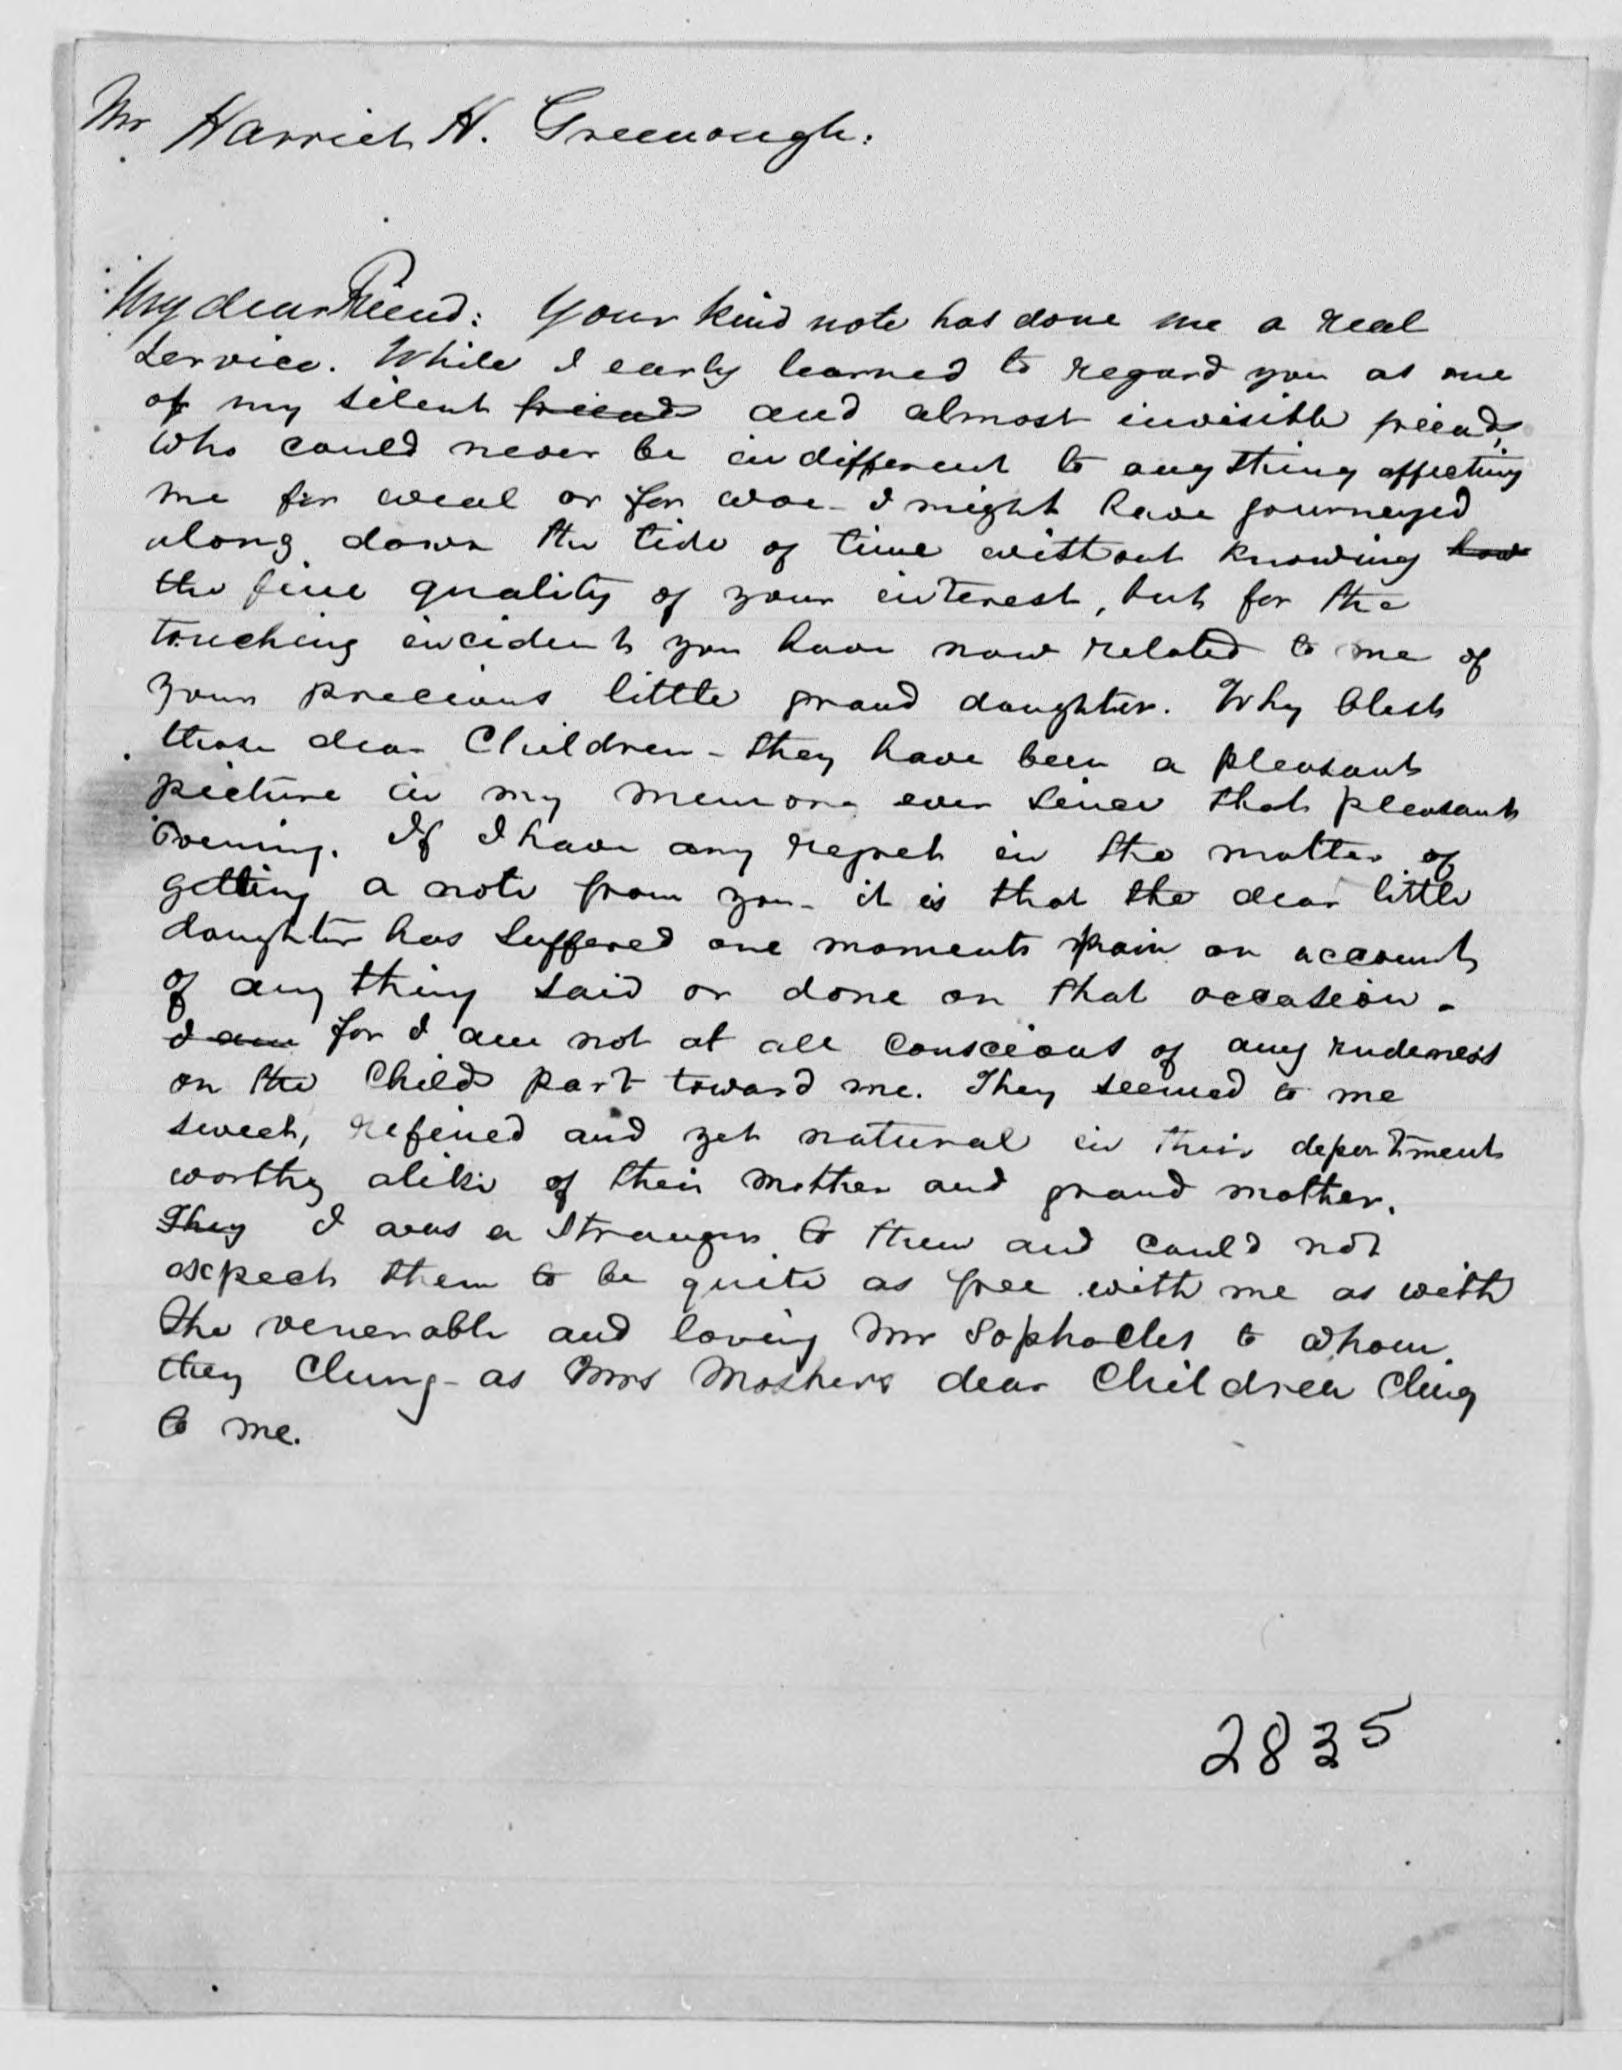 Mrs Harriet H. Greenough:
My dear Friend: Your kind note has done me a real
service. While I early learned to regard you as one
of my silent friends and almost invisible friends,
who could never be indifferent to any thing affecting
me for weal or for woe - I might have journeyed
along down the tide of time without knowing how
the fine quality of your interest, but for the
touching incident you have now related to me of
your precious little grand daughter. Why bless
those dear Children - they have been a pleasant
picture in my memory ever since that pleasant
evening. If I have any regret in the matter of
getting a note from you - it is that the dear little
daughter has suffered one moments pain on account
of any thing said or done on that occasion -
I am for I am not at all conscious of any rudeness
on the Childs part toward me. They seemed to me
sweet, refined and yet natural in their deportment
worthy alike of their mother and grand mother.
They I was a stranger to them and could not
expect them to be quite as free with me as with
the venerable and loving Mr Sophocles to whom
they Clung - as Mrs Moshers dear Children Cling
to me.
2835